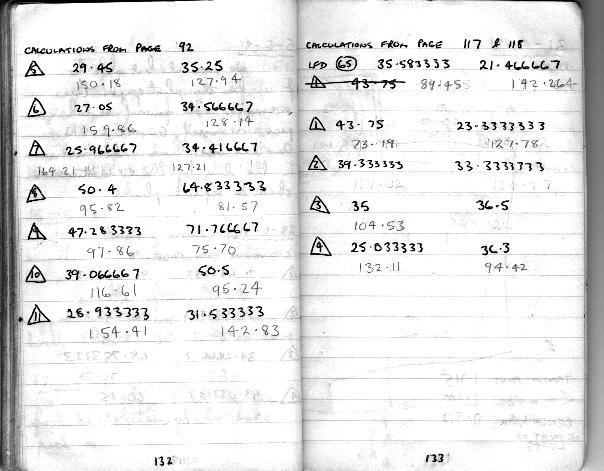 CALCULATIONS FROM PAGE 92
5 29.45 35.25
150.18 127.94
6 27.05 34.566667
159.86 128.14
7 25.966667 34.416667
164.21 127.21
8 50.4 64.833333
95.82 81.57
9 47.283333 71.766667
97.86 75.70
10 39.066667 50.5
116.61 95.24
11 28.933333 31.533333
154.41 142.83
132
CALCULATIONS FROM PAGE 117 & 118
LFD 65 35.583333 21.466667
1 43.75 89.455 192.264
1 43.75 23.3333333
73.19 127.78
2 39.333333 33.3333333
3 35 36.5
104.53
4 25.033333 36.3
132.11 94.42
133